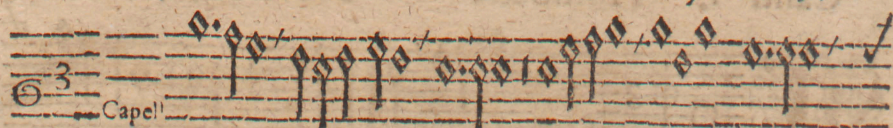 3
Capell'